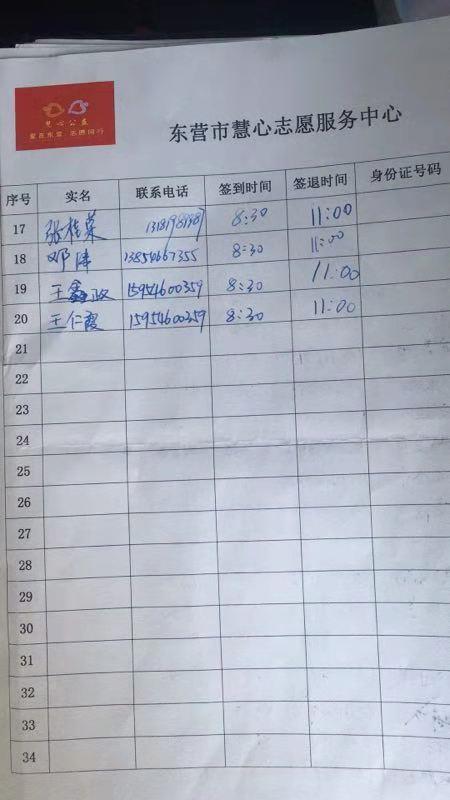 慧心公益
爱在东营 志愿同行
东营市慧心志愿服务中心
序号 实名 联系电话 签到时间 签退时间 身份证号码
17 张桂荣 8:30 11:00
18 邓 13854667355 8:30 11:00
19 王鑫政 15954600359 8:30 11:00
20 王仁霞 15954600359 8:30 11:00
21
22
23
24
25
26
27
28
29
30
31
32
33
34